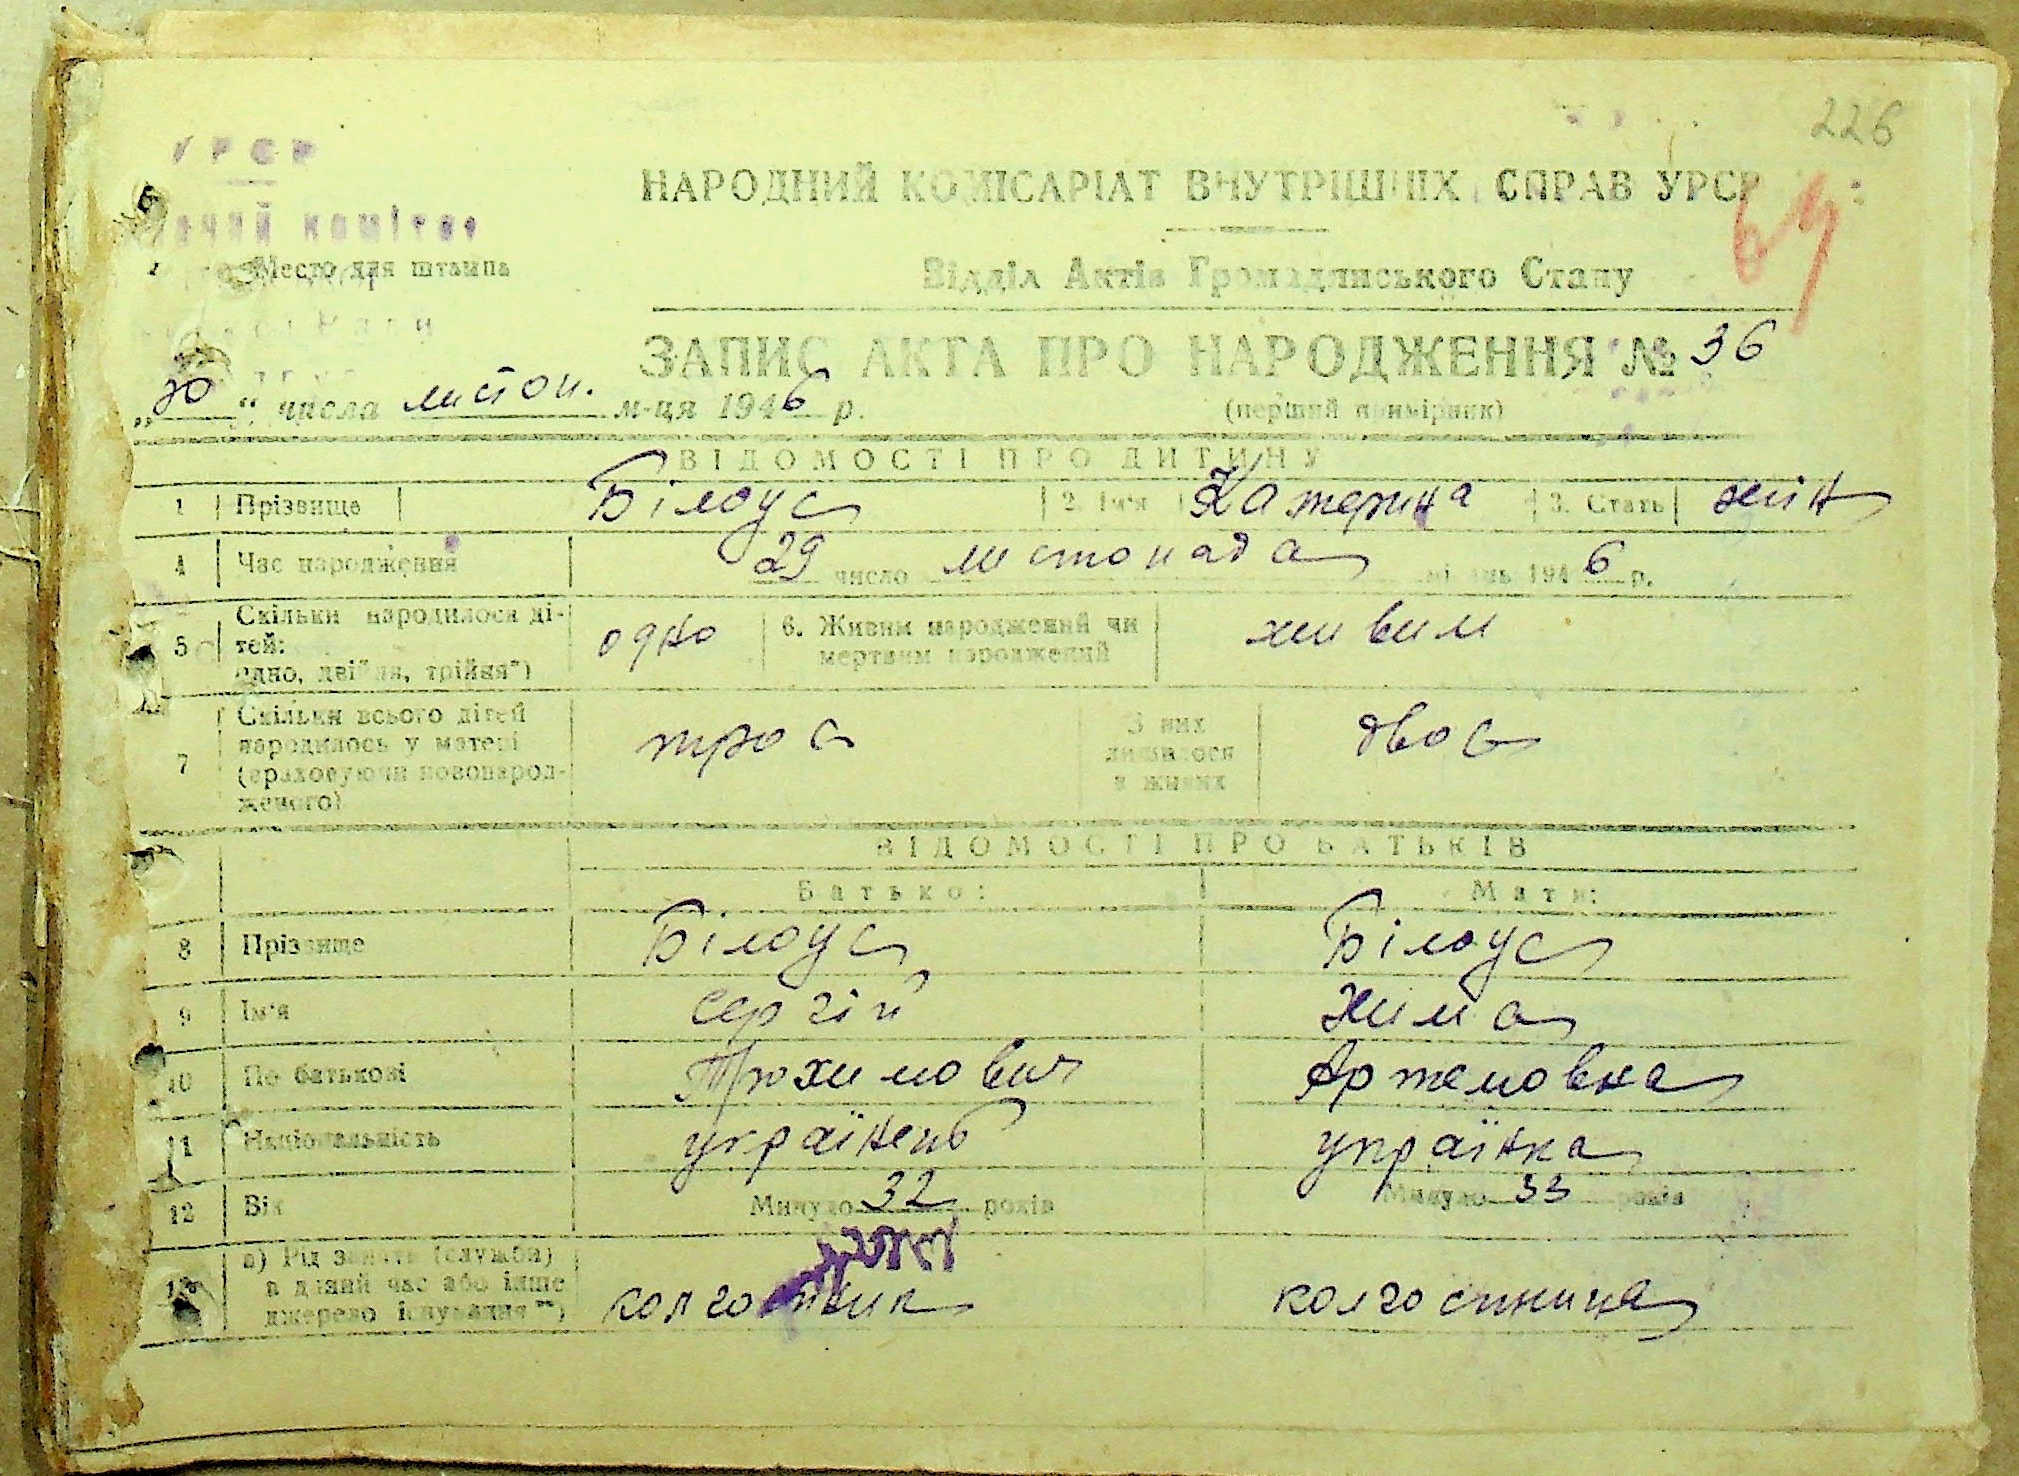 226
УРСР
НАРОДНИЙ КОМІСАРІАТ ВНУТРІШНІХ СПРАВ УРСР
комітет
Место для штампа
Відділ Актів Громадянського Стану
ЗАПИС АКТА ПРО НАРОДЖЕННЯ № 36
„30“ числа листоп. м-ця 1946 р.
(перший примірник)
ВІДОМОСТІ ПРО ДИТИНУ
1 Прізвище Білоус 2. Ім'я Катерина 3. Стать жін
4 Час народження 29 число листопада місяць 1946 р.
5 Скільки народилося ді-
тей:
одно, двійня, трійня*)
одно
6. Живим народжений чи
мертвим народжений
живим
7 Скільки всього дітей
народилось у матері
(враховуючи новонарод-
женого)
троє
З них
лишилося
в живих
двоє
ВІДОМОСТІ ПРО БАТЬКІВ
Батько: Мати:
8 Прізвище Білоус Білоус
9 Ім'я Сергій Хима
10 По батькові Трохимович Артемовна
11 Національність українець українка
12 Вік Минуло 32 років Минуло 33 років
13 а) Рід занять (служби)
в даний час або інше
джерело існування**)
колгоспник колгоспниця